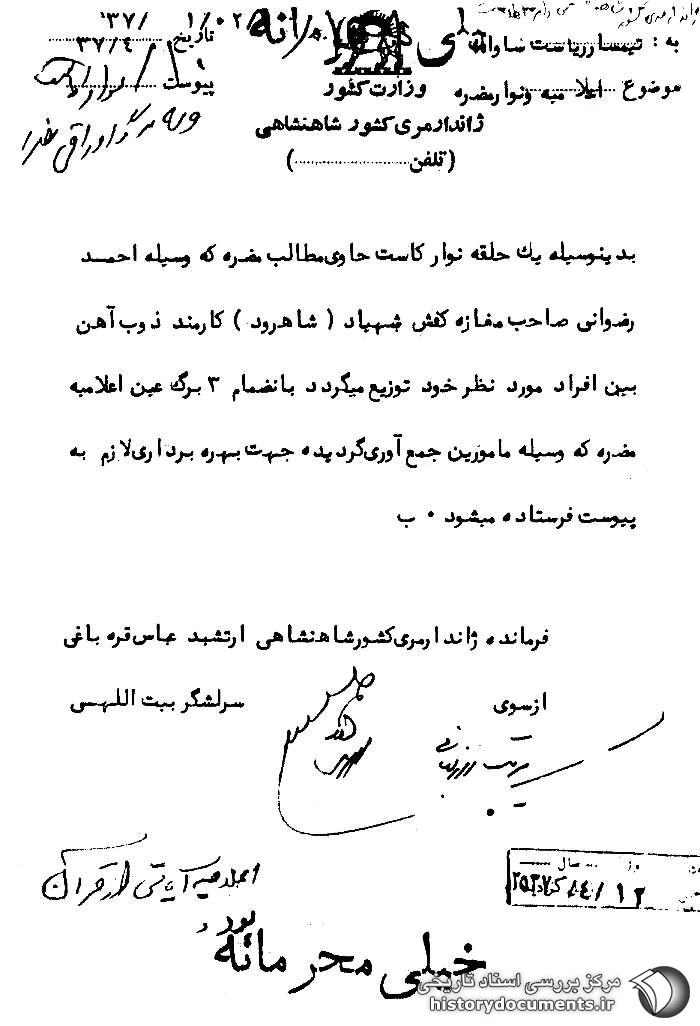 خیلی محرمانه
به : تیمسار ریاست ساواک
تاریخ ۳۷/۴/
موضوع اعلامیه و نوار مضره
پیوست
وزارت کشور
ژاندارمری کشور شاهنشاهی
(تلفن..............)
نوار
و سه برگ اوراق مضره
بدینوسیله یک حلقه نوار کاست حاوی مطالب مضره که وسیله احمد
رضوانی صاحب مغازه کفش شهیاد ( شاهرود ) کارمند ذوب آهن
بین افراد مورد نظر خود توزیع میگردد بانضمام ۳ برگ عین اعلامیه
مضره که وسیله مامورین جمع آوری گردیده جهت بهره برداری لازم به
پیوست فرستاده میشود ۰ ب
فرمانده ژاندارمری کشور شاهنشاهی ارتشبد عباس قره باغی
از سوی سرلشگر بیت اللهی
اعلامیه آیاتی از قرآن
بود
سال
۲۵۳۷/۴/۱۲
خیلی محرمانه
مرکز بررسی اسناد تاریخی
historydocuments.ir